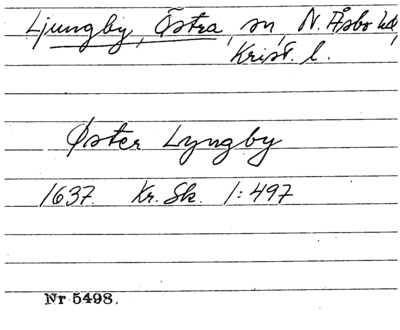 Ljungby, Östra, sn, N. Åsbo hd,
Krist. l.
Øster Lyngby
1637. Kr. Sk. 1:497
Nr 5498.